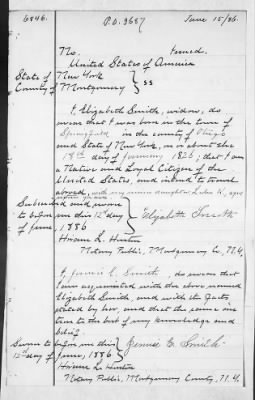 6846.
P.O. 3687
June 15/86.
No. Issued.
United States of America
State of New York } ss
County of Montgomery
I, Elizabeth Smith, widow, do
swear that I was born in the town of
Springfield in the county of Otsego
and State of New York, on or about the
18th day of January 1826; that I am
a Native and Loyal Citizen of the
United States, and intend to travel
abroad, with my minor daughter, aged
Subscribed and sworn
to before me this 12th day
of June, 1886
Elizabeth Smith
Horace L. Huston
Notary Public, Montgomery Co, N.Y.
I, Jennie E. Smith, do swear that
I am acquainted with the above named
Elizabeth Smith, and with the facts
stated by her, and that the same are
true to the best of my knowledge and
belief.
Sworn to before me this
12th day of June, 1886
Jennie E. Smith
Horace L. Huston
Notary Public, Montgomery County, N.Y.